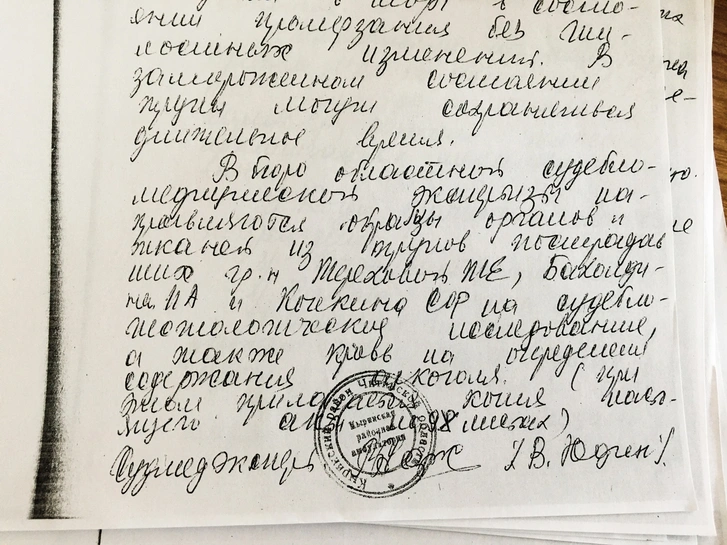 янии промерзания без гни-
лостных изменений. В
замороженном состоянии
трупы могут сохраняться
длительное время.
В бюро областной судебно-
медицинской экспертизы на-
правляются образцы органов и
тканей из трупов пострадав
ших гр.н Тереховой Т.Е, Бахолди-
на ПА и Кочкина СФ на судебно-
гистологическое исследование,
а также кровь на определения
содержания алкоголя. (при
этом копия наст-
ящего акта на 8 листах)
Судмедэксперт /В. Юдин/.
Кыринский район Читинской области
Кыринская
районная
амбулатория